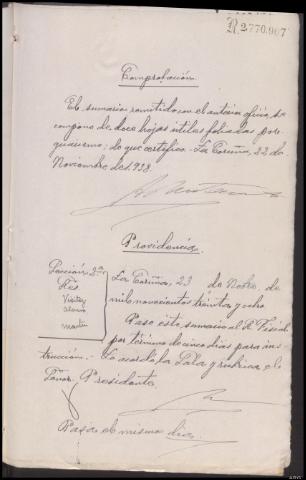 R.2770.907
Comprobación.
El sumario remitido con el anterior oficio, se
compone de doce hojas útiles foliadas por
guarismo; lo que certifico.- La Coruña, 22 de
Noviembre de 1.938.
Providencia.
Sección 2ª
La Coruña, 23 de Nobre. de
mil novecientos treinta y ocho
Martin
Pase este sumario al Sr. Fiscal
por término de cinco días para ins-
trucción.- Lo acordó la Sala y rubrica el
Señor Presidente.
Pasa el mismo día.